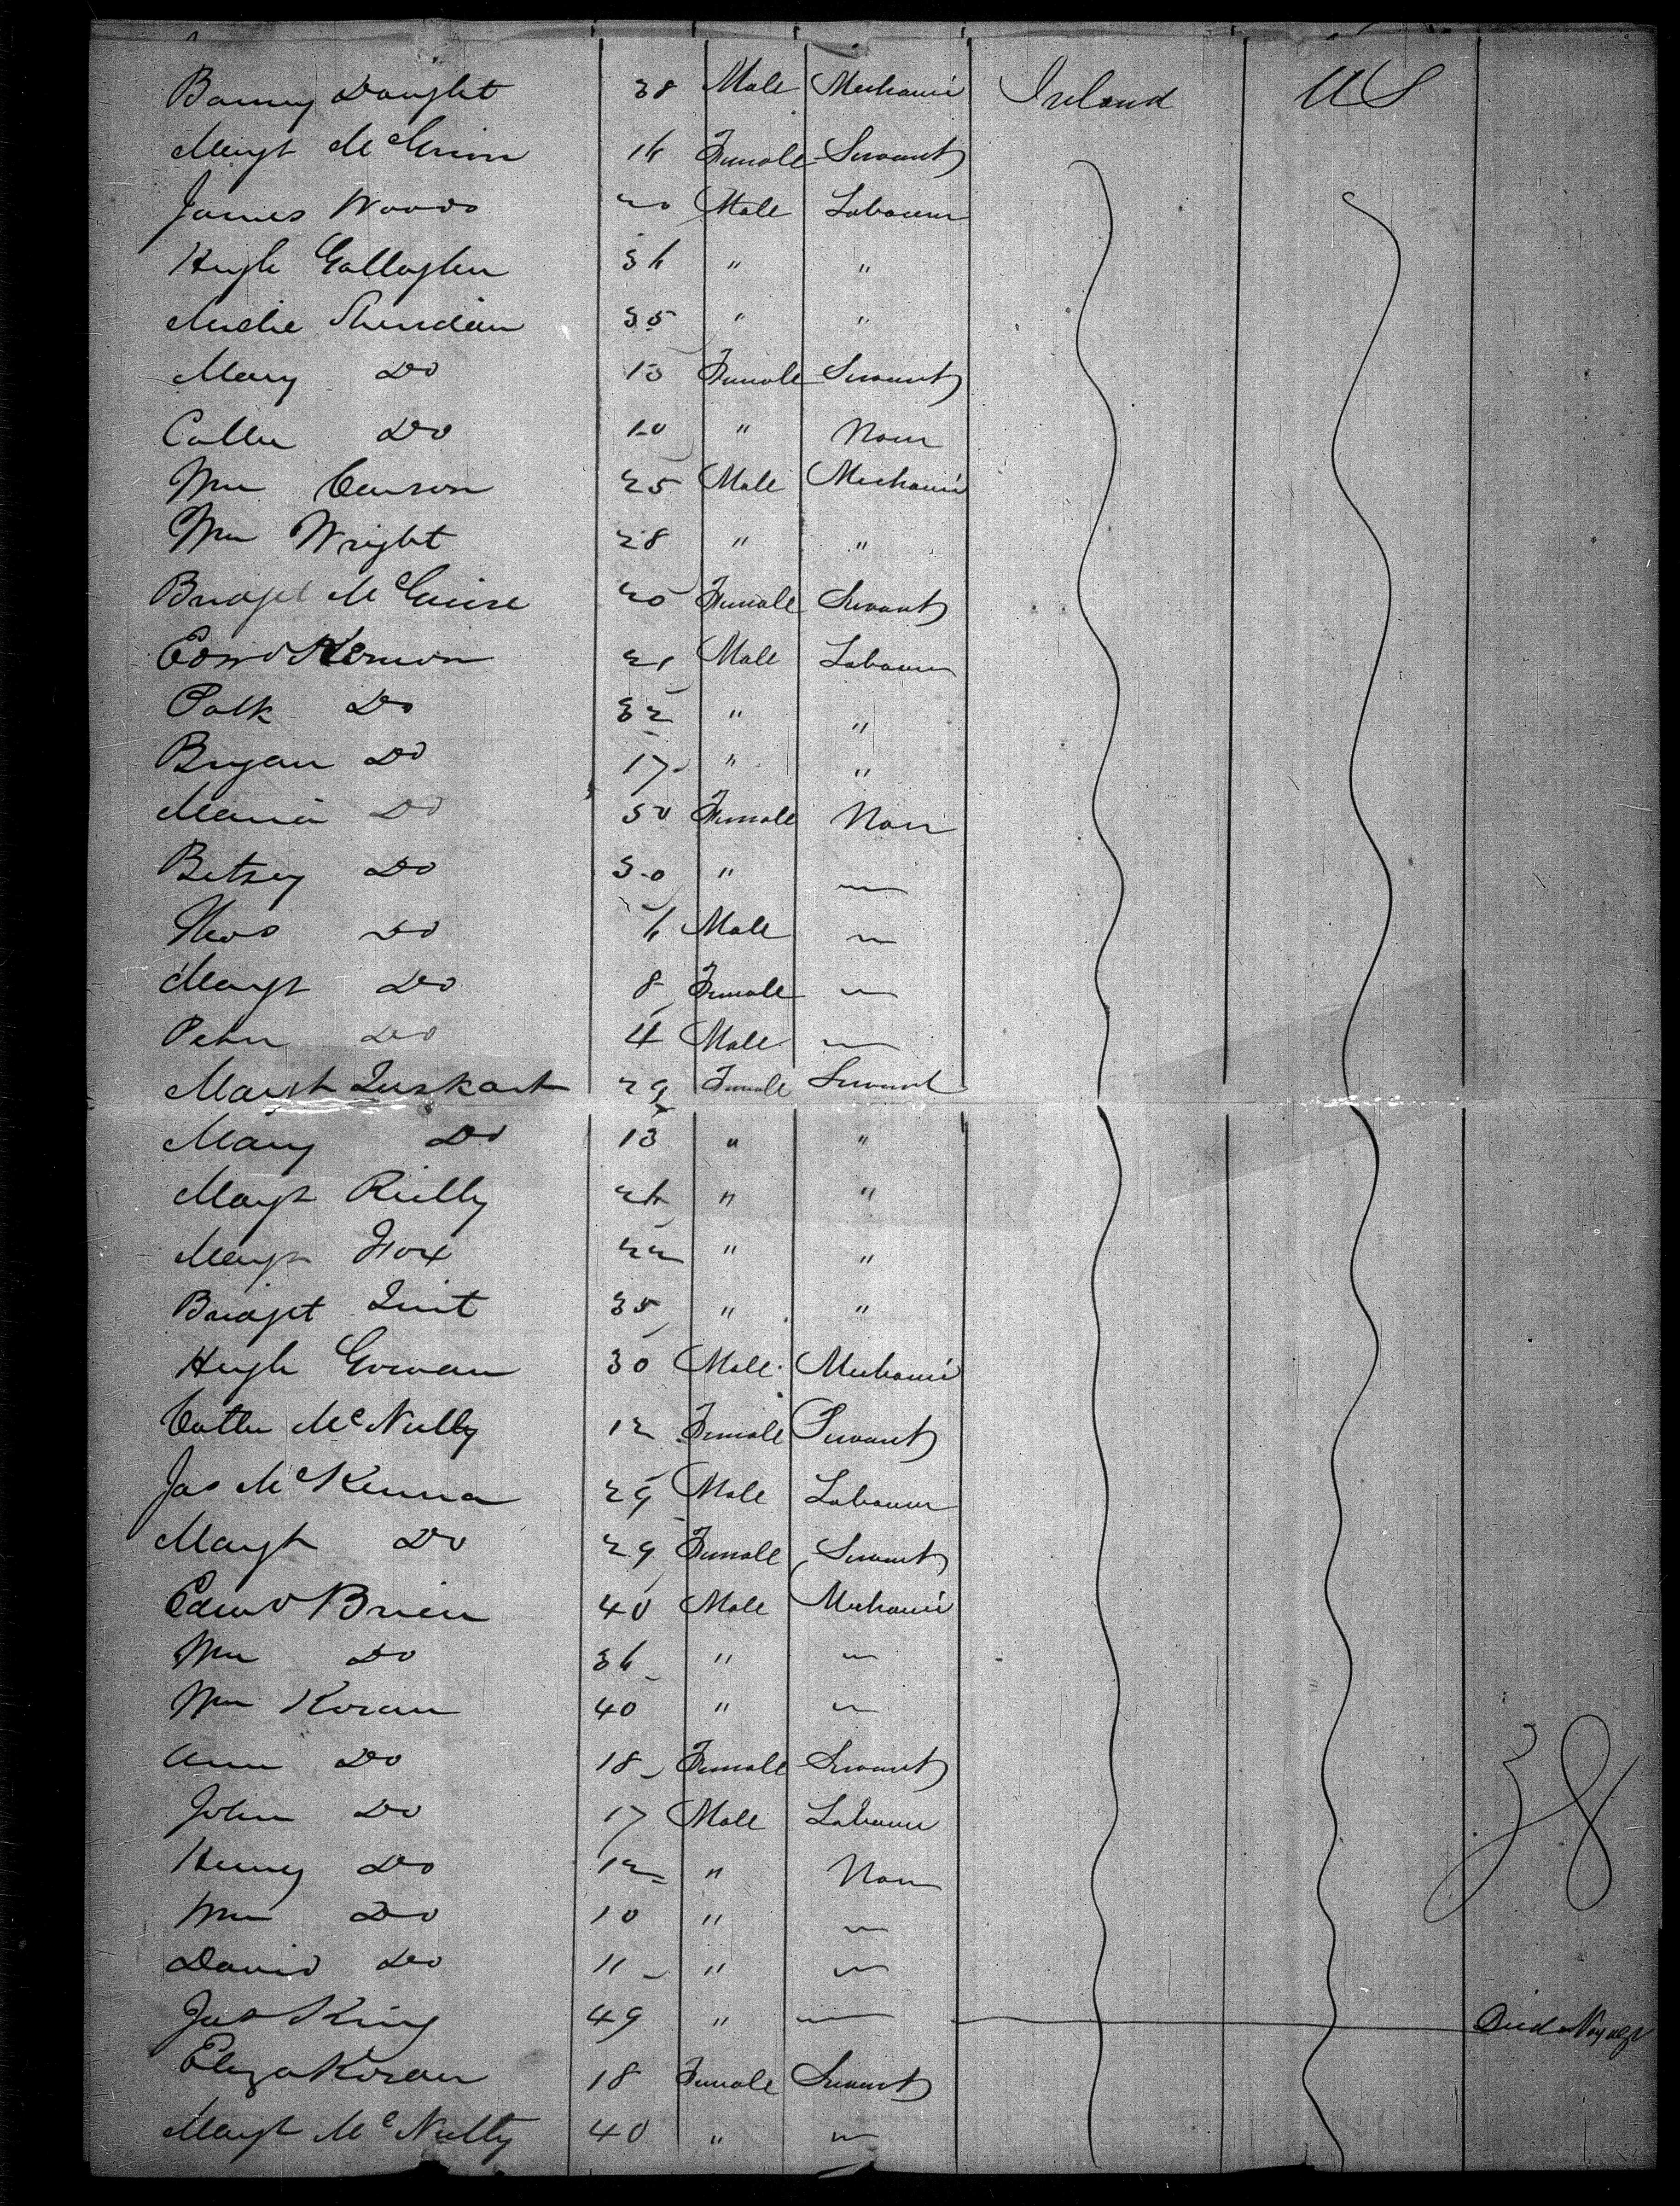 Barney Daught 38 Male Mechanic Ireland US
Margt McGuion 16 Female Servant
James Woods 20 Male Labourer
Hugh Gallagher 36 " "
Michl Sheridan 35 " "
Mary Do 13 Female Servant
Cathe Do 10 " None
Wm Carson 25 Male Mechanic
Wm Wright 28 " "
Bridget McGuire 20 Female Servant
Edwd Kernon 21 Male Labourer
Patk Do 32 " "
Bryan Do 17 " "
Maria Do 50 Female None
Betsey Do 30 " "
Thos Do 6 Male "
Margt Do 8 Female "
Peter Do 4 Male "
Margt Luskart 29 Female Servant
Mary Do 13 " "
Margt Reilly 26 " "
Margt Fox 22 " "
Bridget Quit 35 " "
Hugh Gowan 30 Male Mechanic
Cathe McNulty 12 Female Servant
Jas McKenna 29 Male Labourer
Margt Do 29 Female Servant
Edwd Brien 40 Male Mechanic
Wm Do 36 " "
Wm Koran 40 " "
Ann Do 18 Female Servant
John Do 17 Male Labourer
Henry Do 12 " None
Wm Do 10 " "
David Do 11 " "
Jas King 49 " " Died on Voyage
Eliza Koran 18 Female Servant
Margt McNulty 40 " "
38